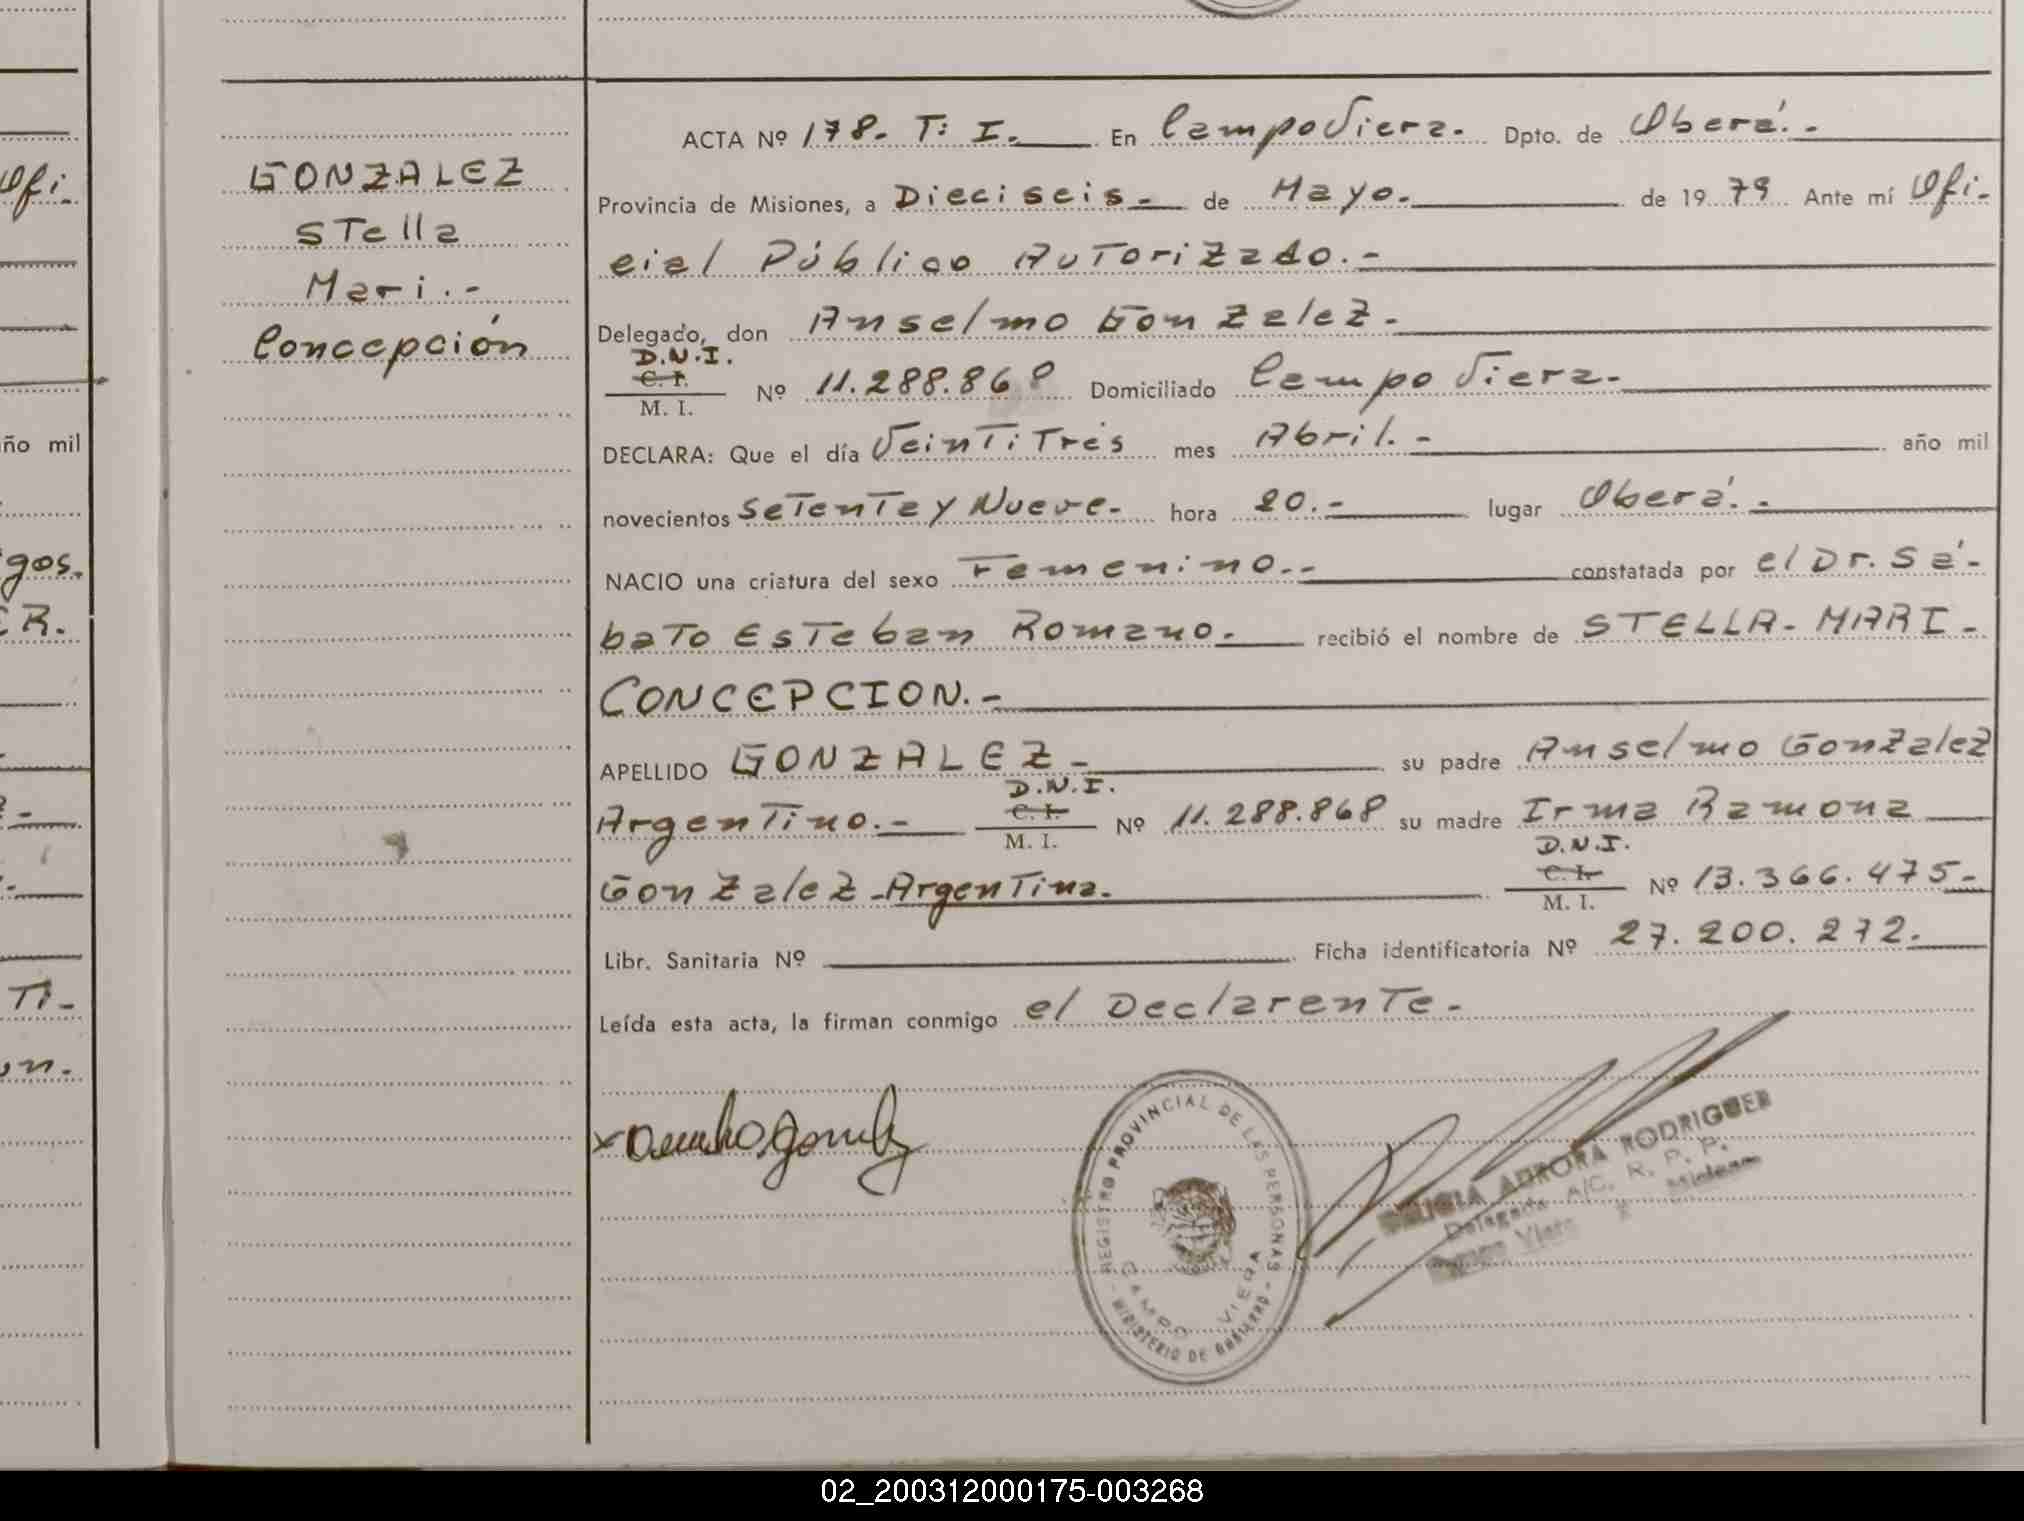 Ofi-
año mil
gos.
ER.
Ti-
GONZALEZ
STella
Mari.-
Concepción
ACTA Nº 178.- T: I. En Campo Viera.- Dpto. de Oberá.-
Provincia de Misiones, a Dieciseis.- de Mayo. de 19 79 Ante mí Ofi-
cial Público Autorizado.-
Delegado, don Anselmo Gonzalez.-
D.N.I.
C. I.
M. I. Nº 11.288.868 Domiciliado Campo Viera.-
DECLARA: Que el día Veintitrés mes Abril.- año mil
novecientos Setenta y Nueve.- hora 20.- lugar Oberá.-
NACIO una criatura del sexo Femenino.- constatada por el Dr. Sá-
bato Esteban Romano.- recibió el nombre de STELLA-MARI-
CONCEPCION.-
APELLIDO GONZALEZ- su padre Anselmo Gonzalez
D.N.I.
Argentino.- C. I. M. I. Nº 11.288.868 su madre Irma Ramona
D.N.I.
Gonzalez-Argentina. C. I. M. I. Nº 13.366.475-
Libr. Sanitaria Nº Ficha identificatoria Nº 27.200.272.-
Leída esta acta, la firman conmigo el Declarante.-
REGISTRO PROVINCIAL DE LAS PERSONAS
CAMPO VIERA
- MINISTERIO DE GOBIERNO -
AURORA RODRIGUER
Delegada A/C. R. P. P.
Campo Viera Misiones
02_200312000175-003268